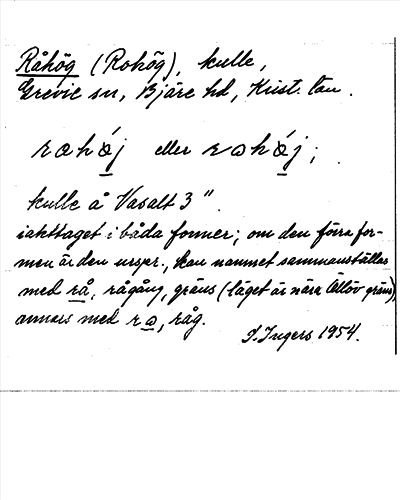 Råhög (Rohög), kulle,
Grevie sn, Bjäre hd, Krist. län.
rahǿj eller rɔhǿj;
kulle å Vasalt 3".
iakttaget i båda former; om den förra for-
men är den urspr., kan namnet sammanställas
med rå, rågång, gräns (läget är nära Ällöv gräns),
annars med rɔ, råg.
I. Ingers 1954.